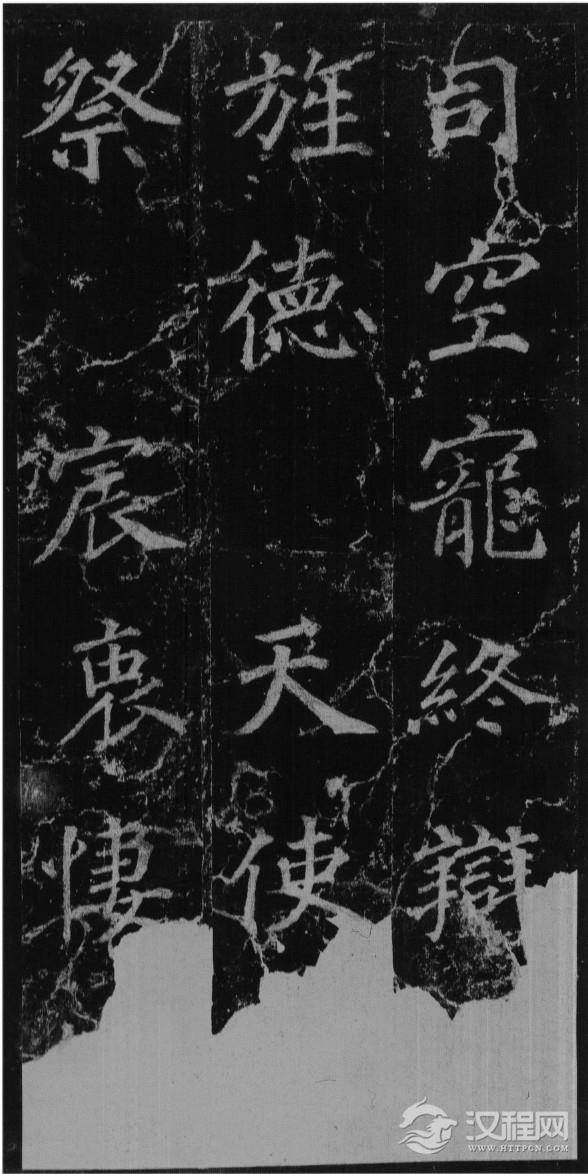 司空寵終辯
旌德 天使
祭 宸衷悽
汉程网
WWW.HTTPCN.COM